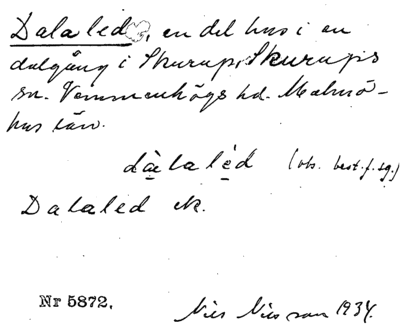 Dalaled, en del hus i en
dalgång i Skurup, Skurups
sn. Vemmenhögs hd. Malmö-
hus län.
dàlaléd (obs. best. f. sg.)
Dalaled ek.
Nr 5872. Nils Nilsson 1934.